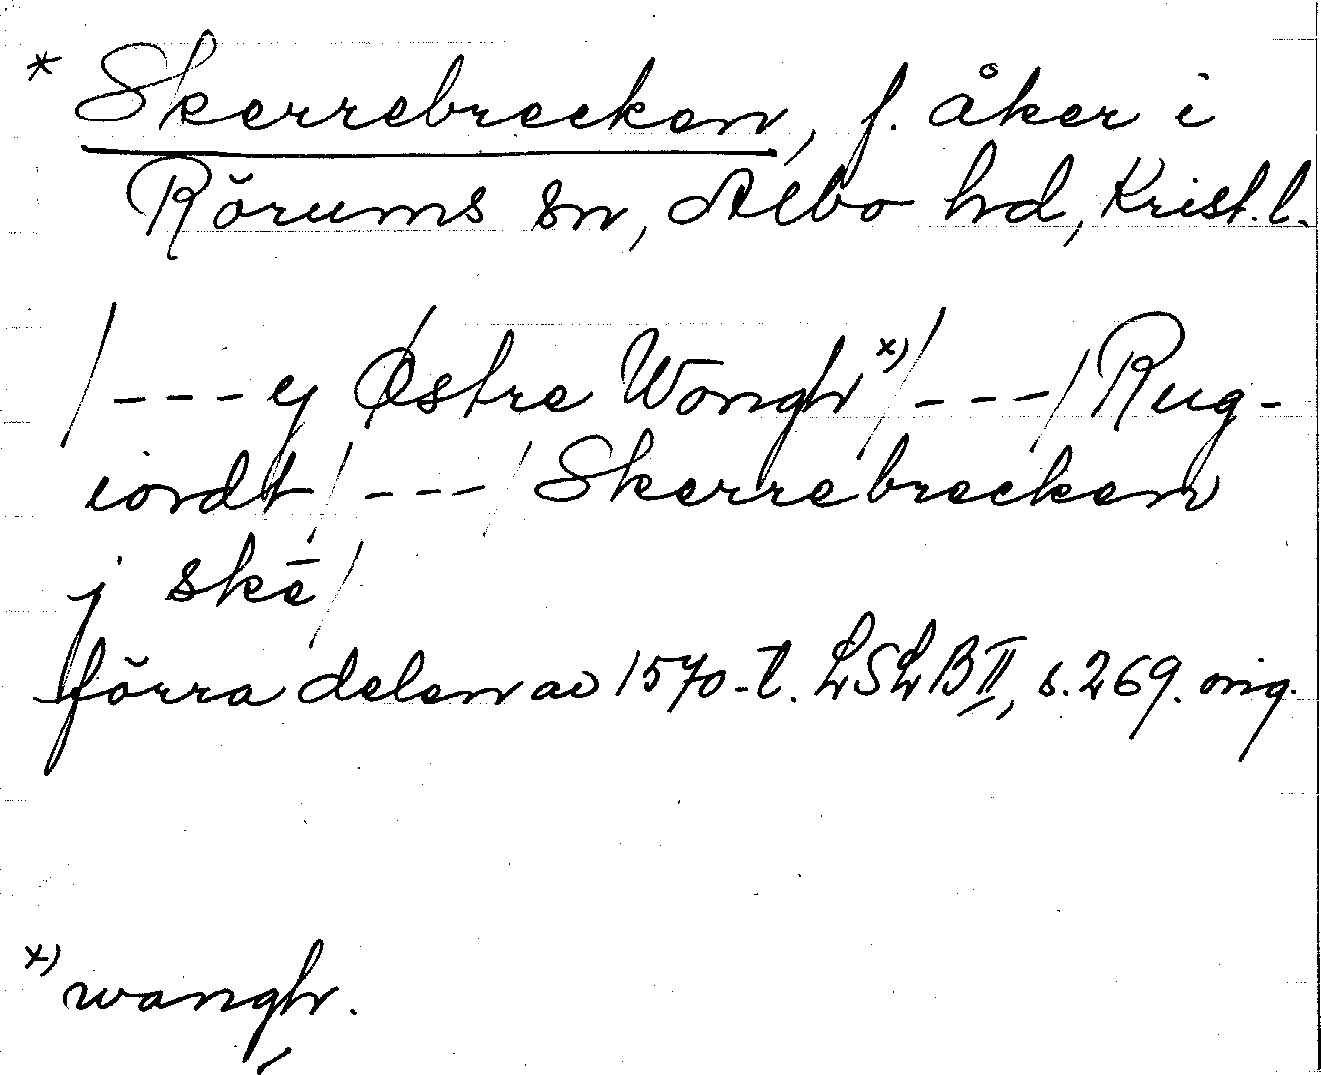 * Skerrebrecken, f. åker i
Rörums sn, Albo hd, Krist.l.
/---ej Østre Wongh x) /---/ Rug-
iordt /---/ Skerrebrecken
j skē/
förra delen av 1570-t. LSLB II, s. 269. orig.
x) wangh.